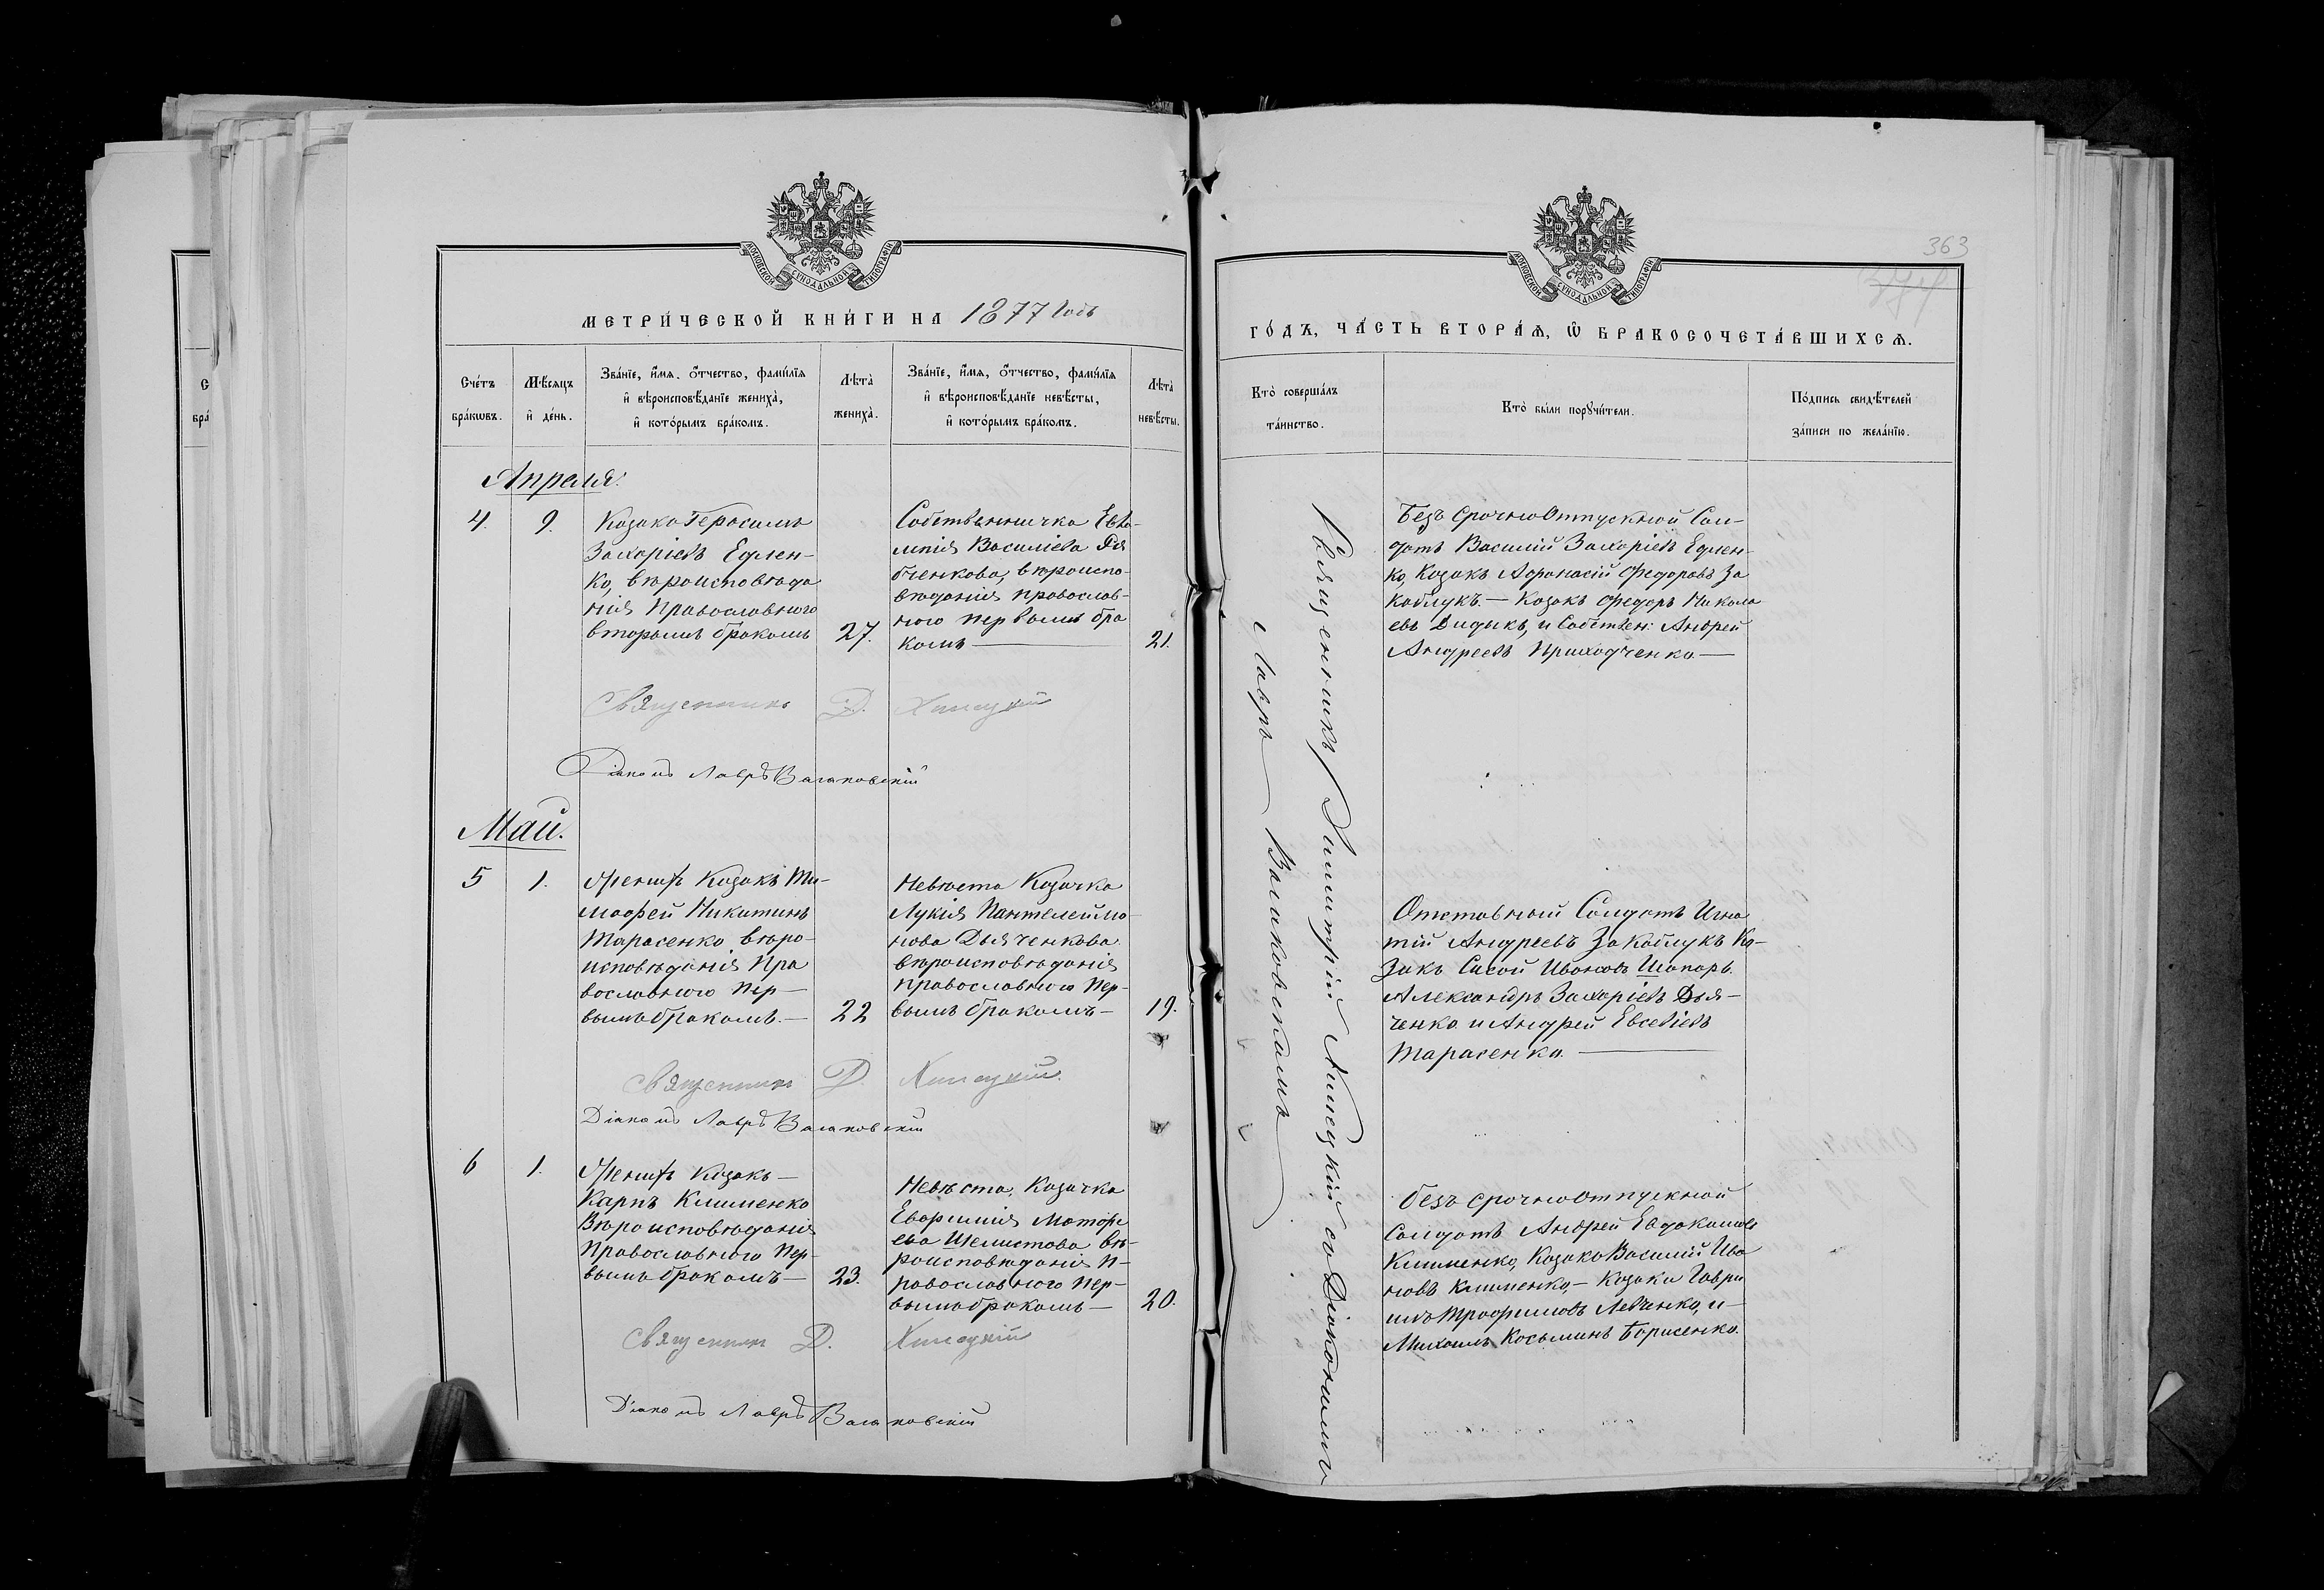 МОСКОВСКОЙ СУНОДАЛЬНОЙ ТИПОГРАФІИ
МЕТРИ́ЧЕСКОЙ КНИ́ГИ НА 1877 Годъ
Сче́тъ бра́кѡвъ.
М҃ѣсяцъ и҆ де́нь.
Зва́нїе, и҆́мя, ѻ҆́тчество, фами́лїя
и҆ вѣроисповѣ́данїе жениха̀,
и҆ кото́рымъ бра́комъ.
Лѣта̀ жениха̀.
Зва́нїе, и҆́мя, ѻ҆́тчество, фами́лїя
и҆ вѣроисповѣ́данїе невѣ́сты,
и҆ кото́рымъ бра́комъ.
Лѣта̀ невѣ́сты.
Апреля.
4. 9.
Козакъ Герасимъ
Захаріевъ Едлен-
ко, вѣроисповѣда
нія Православного
вторымъ бракомъ 27.
Собственничка Евла-
мпія Василіева Дя
ченкова, вѣроиспо-
вѣданія православ-
ного первымъ бра
комъ — 21.
Священникъ Д.
Діаконъ Лавръ
Май.
5 1.
Женихъ Козакъ Ти-
моѳей Никитинъ
Тарасенко вѣро-
исповѣданія Пра
вославного пер-
вымъ бракомъ.— 22
Невѣста Козачка
Лукія Пантелеймо-
нова Дьяченкова
вѣроисповѣданія
православного пер-
вымъ бракомъ— 19.
Священникъ Д.
Діаконъ Лавръ
6 1.
Женихъ Козакъ —
Карпъ Клименко
Вѣроисповѣданія
Православного пер-
вымъ бракомъ— 23.
Невѣста, Козачка
Евфимія Матфе
ева Шелистова вѣ-
роисповѣданія п-
равославного пер-
вымъ бракомъ— 20.
Священникъ Д.
Діаконъ Лавръ
363
МОСКОВСКОЙ СУНОДАЛЬНОЙ ТИПОГРАФІИ
ГО́ДЪ, ЧА́СТЬ ВТОРА́Я, Ѡ҆ БРАКОСОЧЕТА́ВШИХСЯ.
Кто̀ соверша́лъ та́инство.
Кто̀ бы́ли порꙋчи́тели.
По́дпись свидѣ́телей
за́писи по жела́нїю.
Священникъ Димитрій со Діакономъ
Лавръ
Безъ срочноотпускной Сол-
датъ Василій Захаріевъ Едлен-
ко, Козакъ Афанасій Федоровъ За
каблукъ.— Козакъ Федоръ Никола
евъ Дидикъ, и Собствен: Андрей
Андреевъ Приходченко—
Отставной Солдатъ Игна
тій Андреевъ Закаблукъ Ко-
закъ Сисой Ивановъ Шапарь.
Александръ Захаріевъ Дья-
ченко и Андрей Евсевіевъ
Тарасенко. —
безъ срочноотпускной
Солдатъ Андрей Евдокимовъ
Клименко, Козакъ Василій Ива
новъ Клименко,— Козаки Гаври
илъ Трофимовъ Левченко, и—
Михаилъ Косьминъ Борисенко.